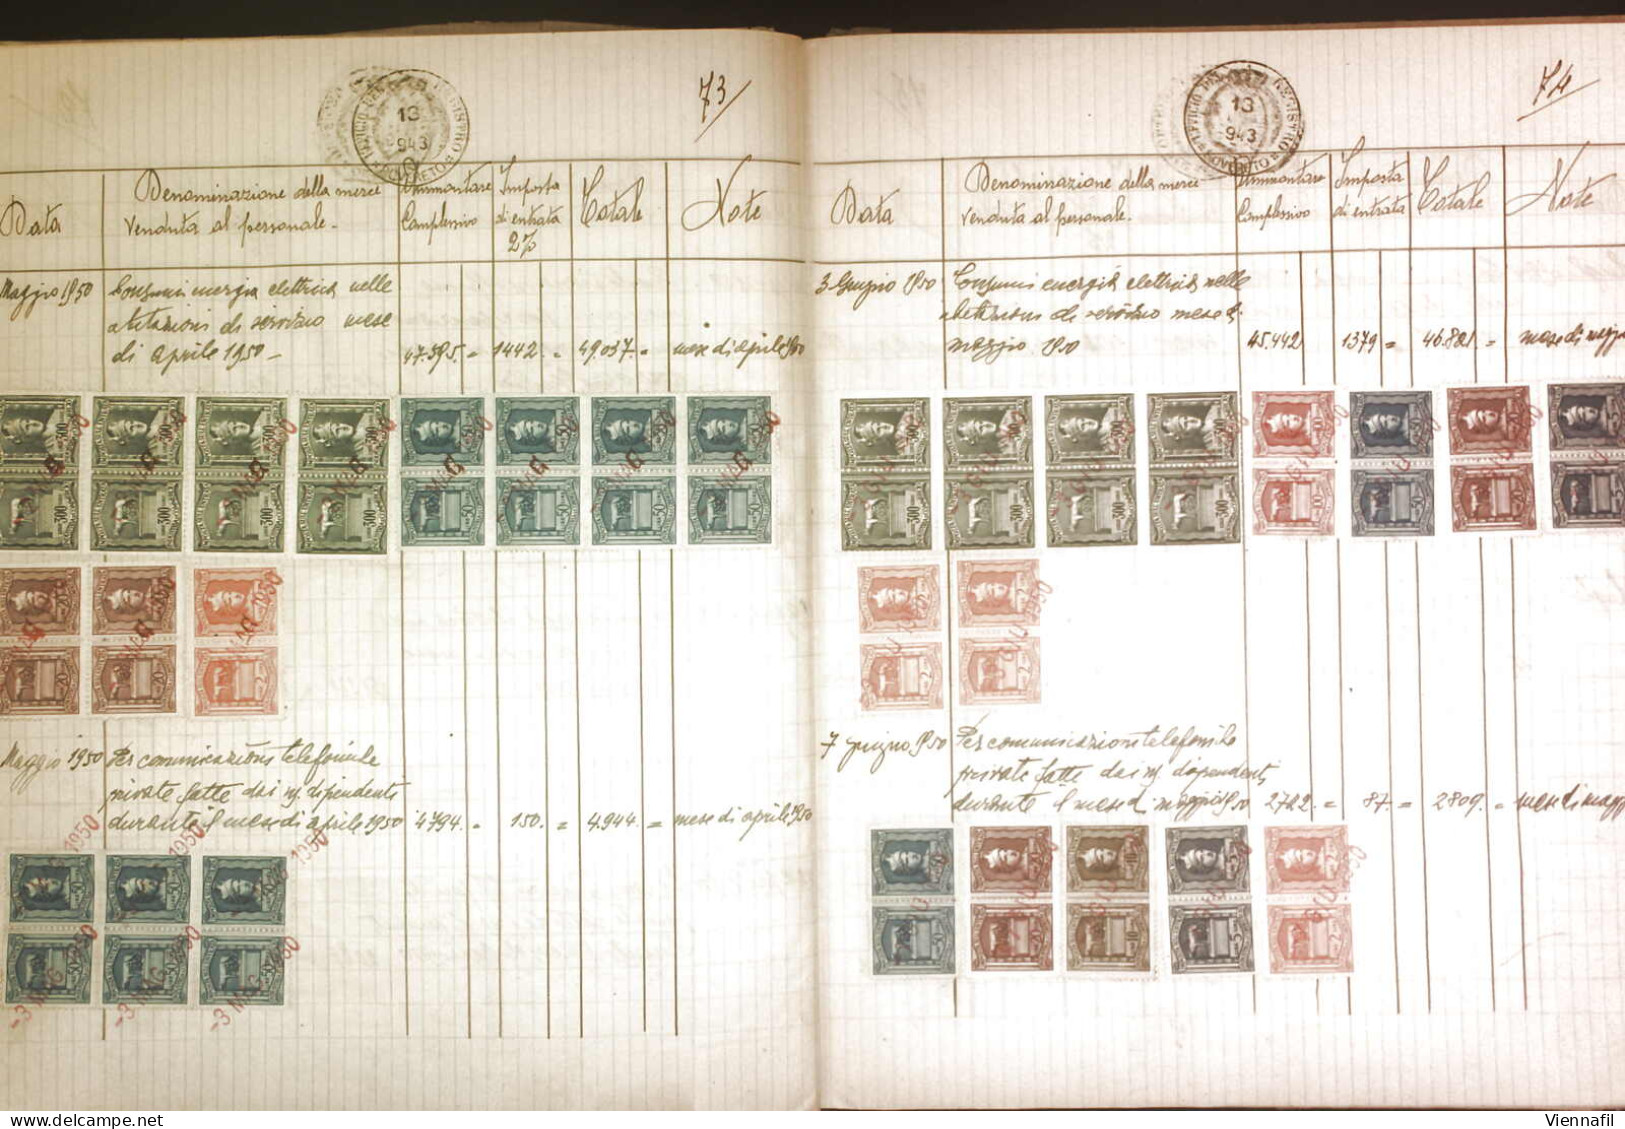 73
UFFICIO DEL REGISTRO
13
943
ROVERETO
Data
Denominazione della merce
venduta al personale.
Ammontare
Complessivo
Imposta
di entrata
2%
Totale
Note
Maggio 1950
Consumi energia elettrica nelle
abitazioni di servizio mese
di aprile 1950 -
47.595. = 1442. = 49.037. = mese di aprile 1950
Maggio 1950
Per comunicazioni telefoniche
private fatte dai ns. dipendenti
durante il mese di aprile 1950
4794. = 150. = 4.944. = mese di aprile 1950
-3 MAG. 1950
-3 MAG. 1950
-3 MAG. 1950
74
UFFICIO DEL REGISTRO
13
943
ROVERETO
Data
Denominazione della merce
venduta al personale.
Ammontare
Complessivo
Imposta
di entrata
Totale
Note
3 Giugno 1950
Consumi energia elettrica nelle
abitazioni di servizio mese di
maggio 1950
45.442 1379 = 46.821 = mese di maggio
7 giugno 1950
Per comunicazioni telefoniche
private fatte dai ns. dipendenti
durante il mese di maggio 1950
2722. = 87. = 2809. = mese di maggio
Viennafil